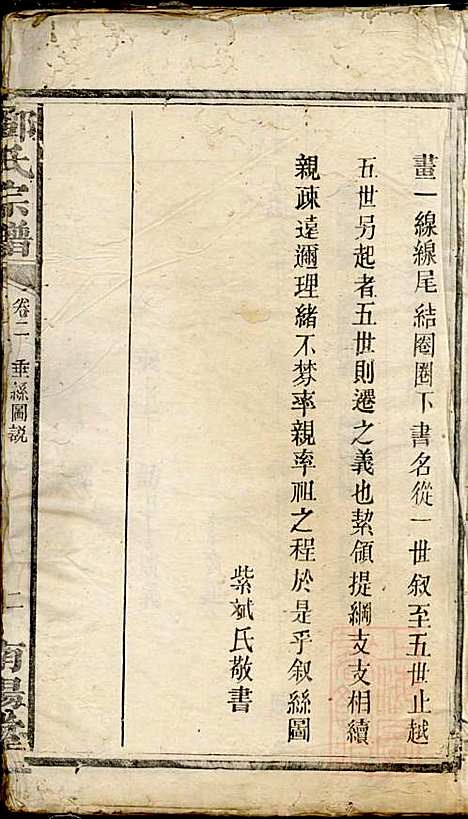 畫一線線尾結圈圈下書名從一世敘至五世止越
五世另起者五世則遷之義也絜領提綱支支相續
親疎遠邇理緒不棼率親率祖之程於是乎敘絲圖
紫斌氏敬書
鄧氏宗譜
卷二 垂絲圖説
二
南陽堂